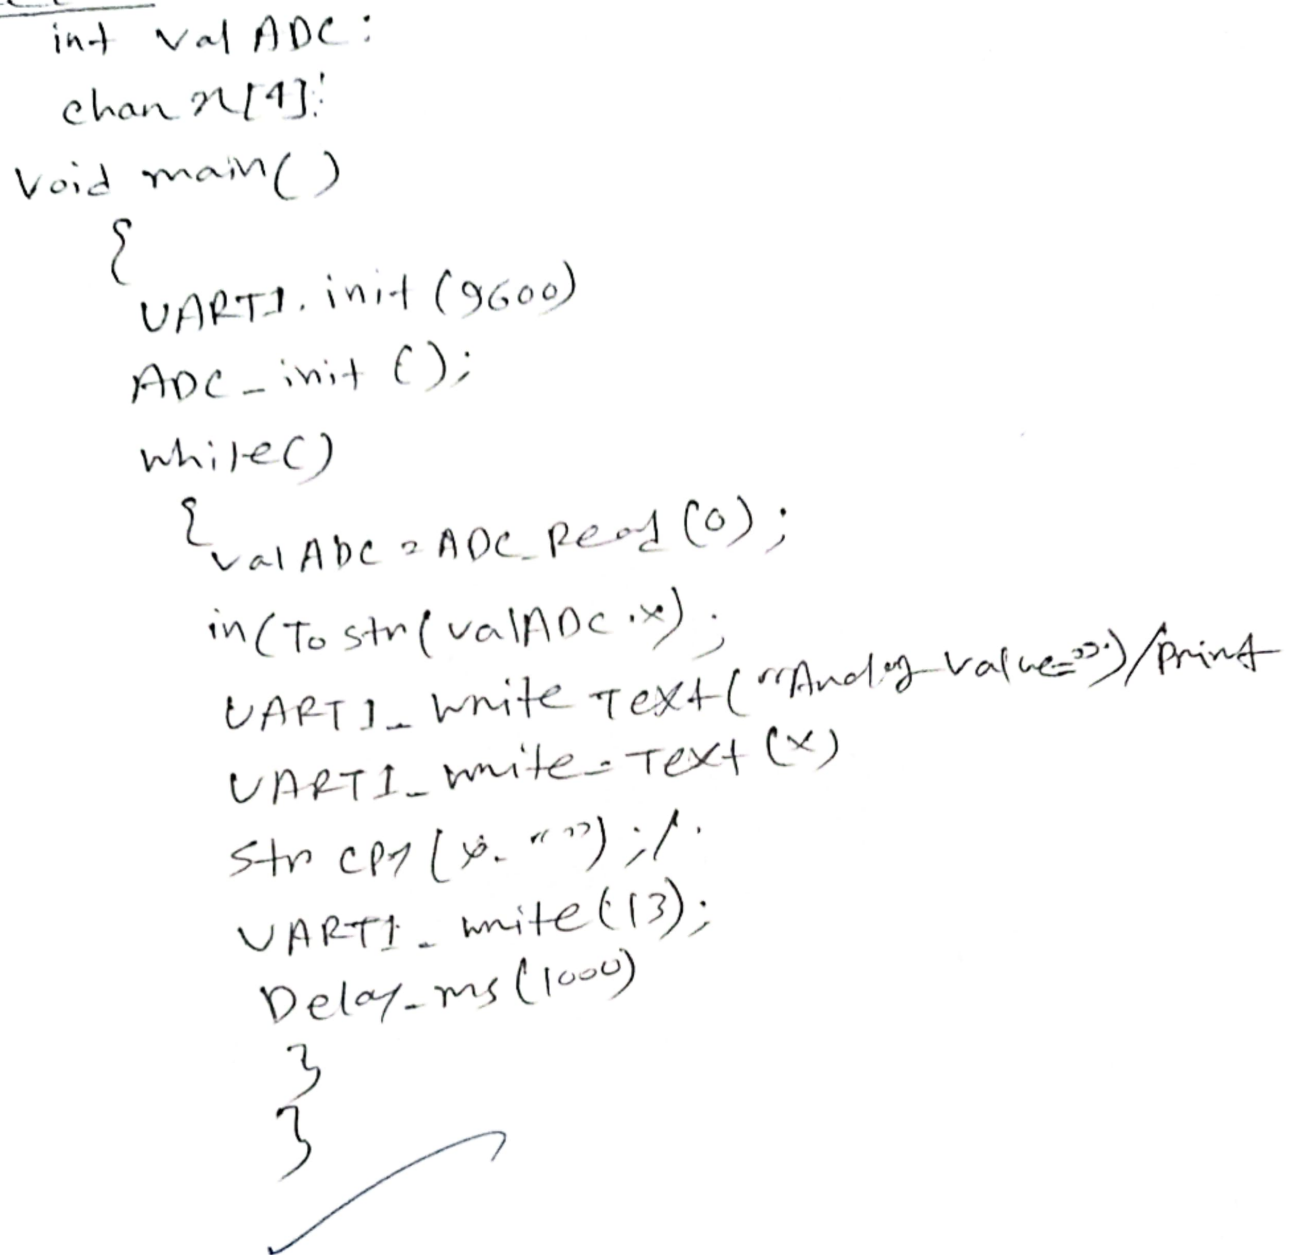 int val ADC:
chan x[4];
Void main()
{
UART1. init (9600)
ADC_init ();
while()
{
val ADC = ADC_Read (0);
in(To str( valADC .x) ;
UART1_ write Text( "Analog_Value=")/print
UART1_write_Text (x)
Str cpy (x. " ") ;/.
UART1_ write(13);
Delay_ms (1000)
}
}